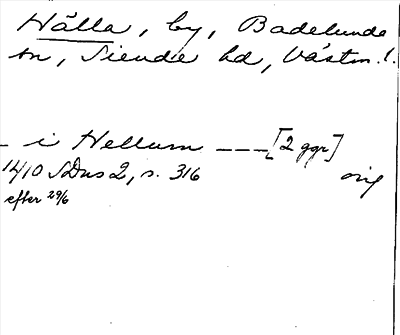 Hälla, by, Badelunda
sn, Siende hd, Västm. l.
– i Hellum – – – [2 ggr]
1410 SDns 2, s. 316 orig
efter 29/6